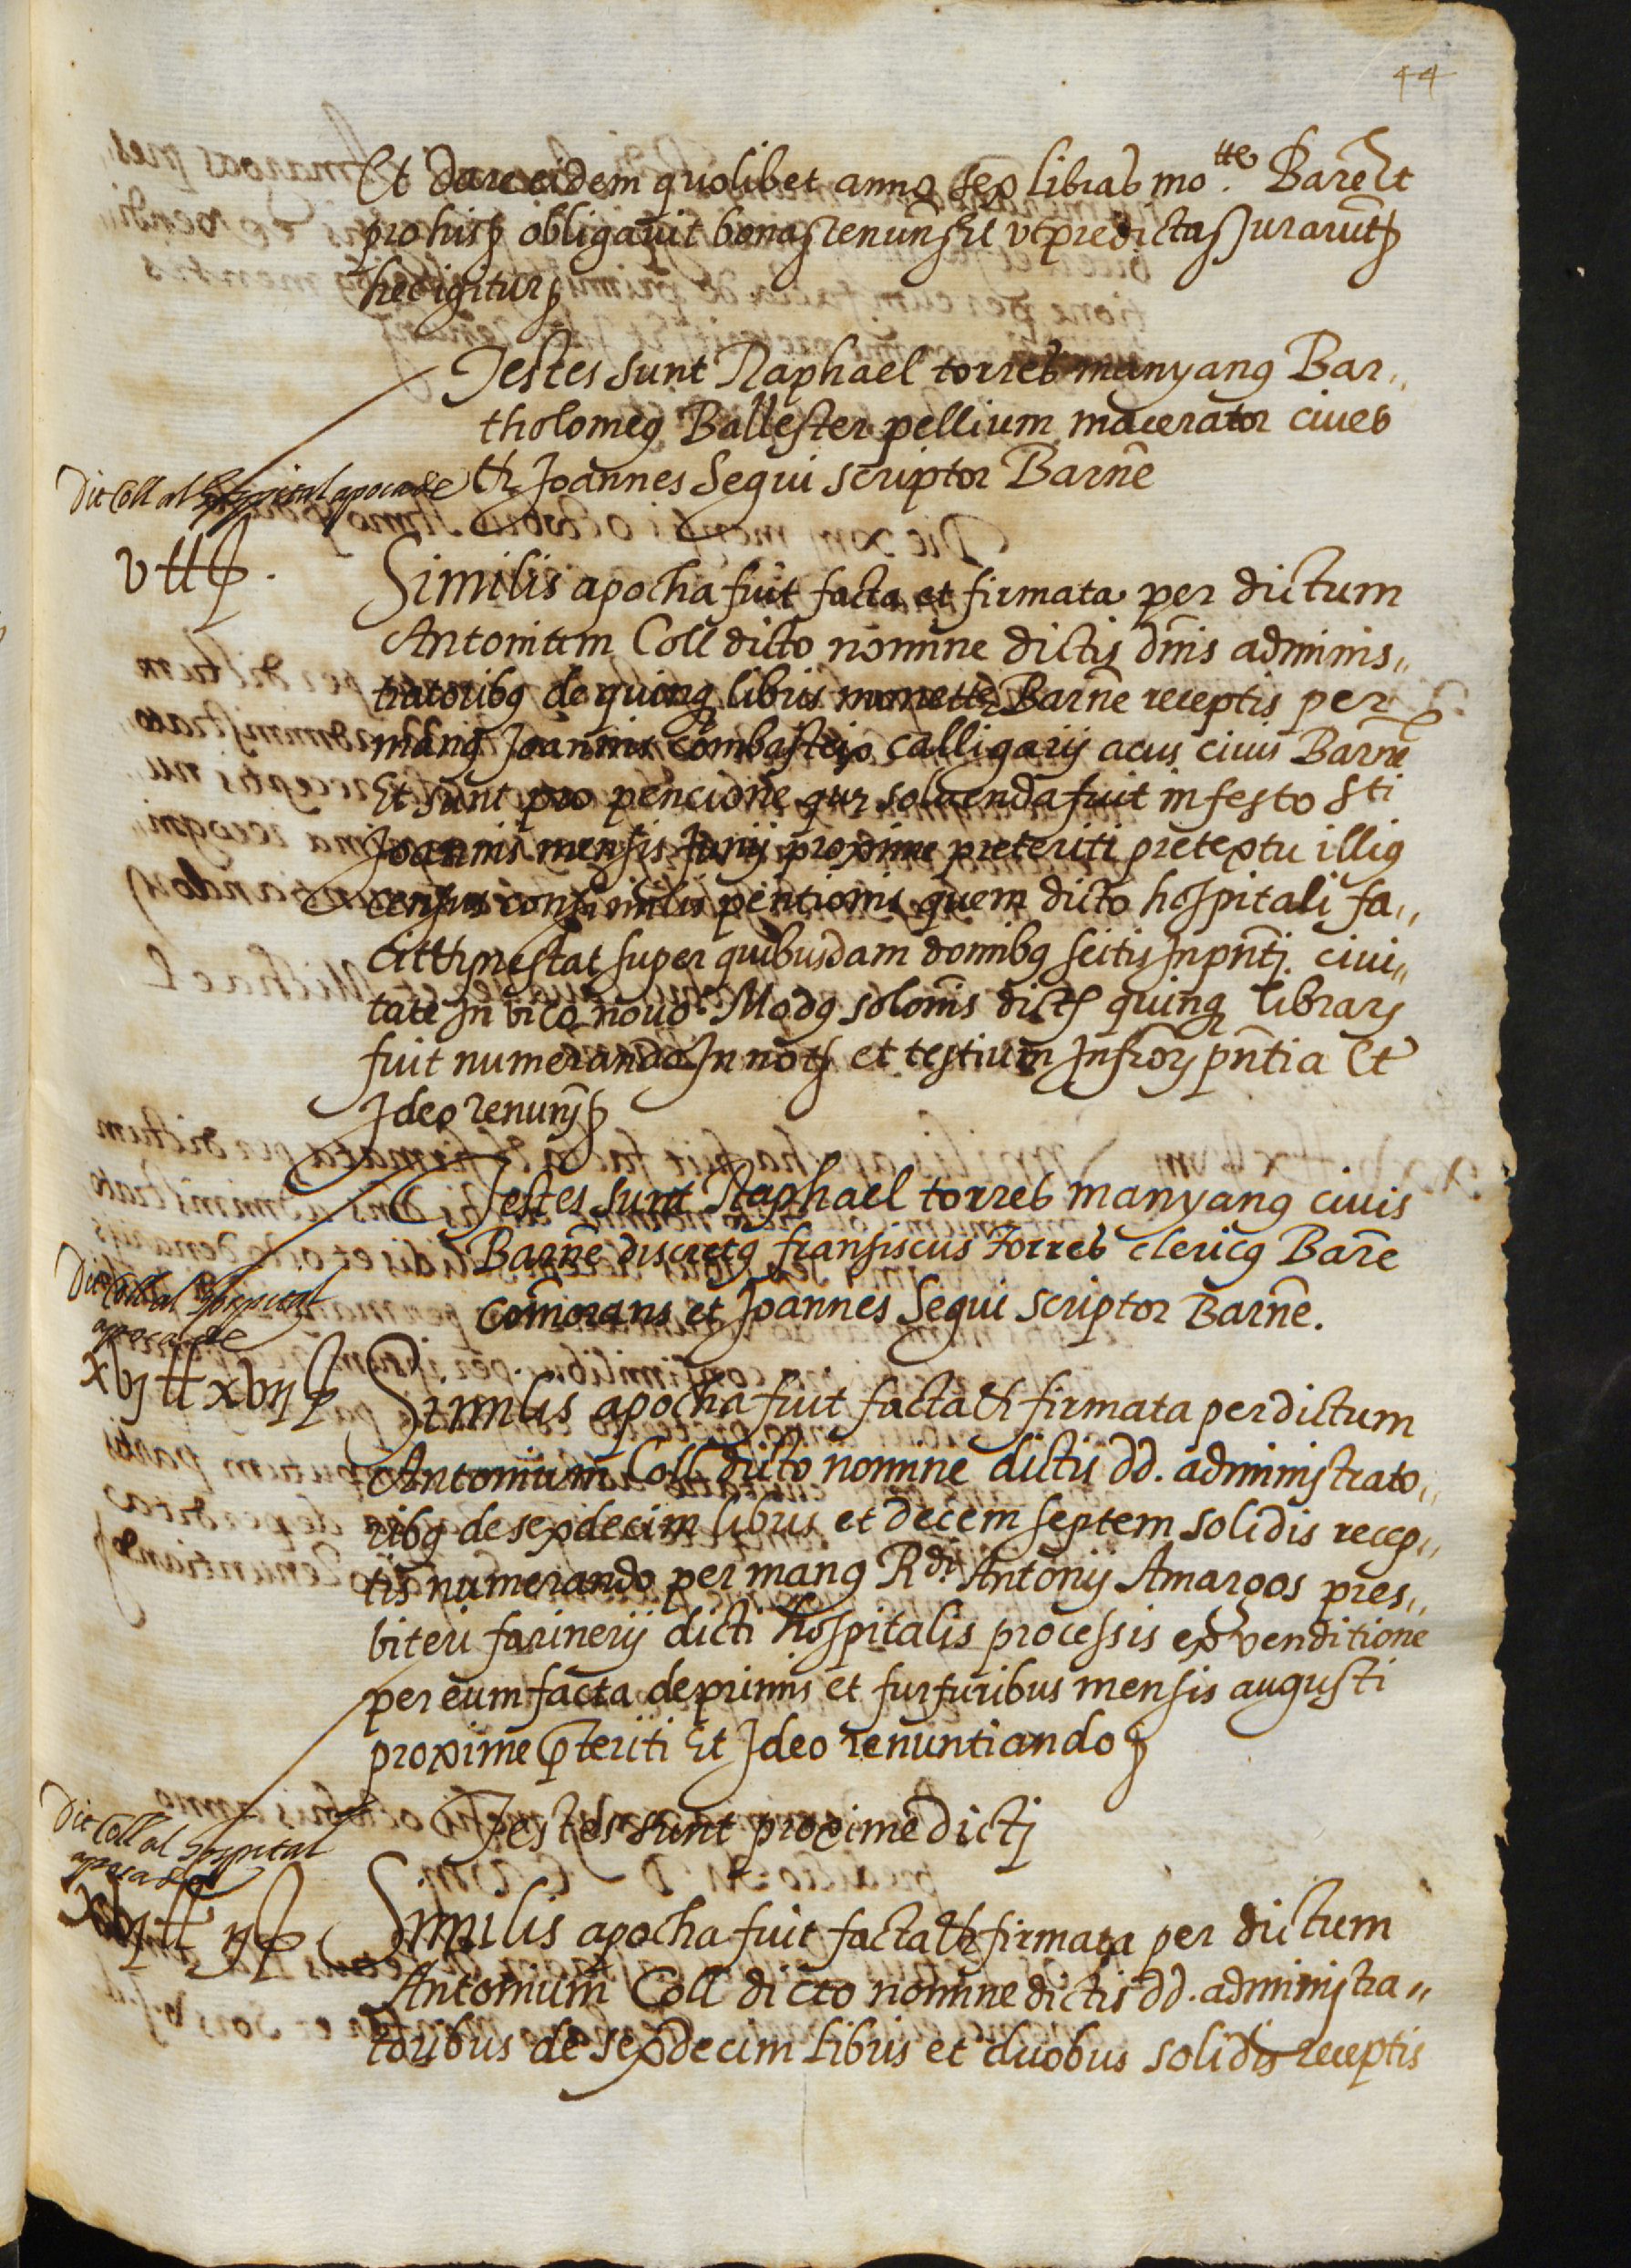 44
Et dare eidem quolibet anno sex libras mo.tte Barñe Et
pro his obligavit bona renunt Et ut predicta Jurarunt
hec igitur
Testes sunt Raphael torres manyanus Bar„
tholomeus Ballester pellium macerator cives
Et Joannes Segui scriptor Barñe
Dit Coll al hospital apoca de
v ℔ β.
Similis apocha fuit facta et firmata per dictum
Antonium Coll dicto nomine dictis dñis adminis„
tratoribus de quinque libris monette Barñe receptis per
manus Joannis Combasteijo calligarij acus civis Barñe
Et sunt pro pencione que solvenda fuit in festo Sti
Joannis mensis Junij proxime preteriti pretextu illius
census consimilis pentionis quem dicto hospitali fa„
cit Et prestat super quibusdam domibus scitis In pñti civi„
tate In vico novo. Modus solonis dictis quinque librarum
fuit numerando In not et testium Infror pñtia Et
Ideo renun
Testes sunt Raphael torres manyanus civis
Barñe discretus fransiscus Torres clericus Barñe
comorans et Joannes Segui scriptor Barñe.
Dit Coll al hospital
apoca de
xvj ℔ xvij β
Similis apocha fuit facta Et firmata per dictum
Antonium Coll dicto nomine dictis dd. administrato„
ribus de sexdecim libris et decem septem solidis recep„
tis numerando per manus Rdi Antonij Amargos pres„
biteri farinerij dicti hospitalis processis ex venditione
per eum facta de primis et furfuribus mensis augusti
proxime preteriti Et Ideo renuntiando
Testes sunt proxime dictj
Dit Coll al hospital
apoca de
xvj ℔ ij β
Similis apocha fuit facta Et firmata per dictum
Antonium Coll dicto nomine dictis dd. administra„
toribus de sexdecim libris et duobus solidis receptis